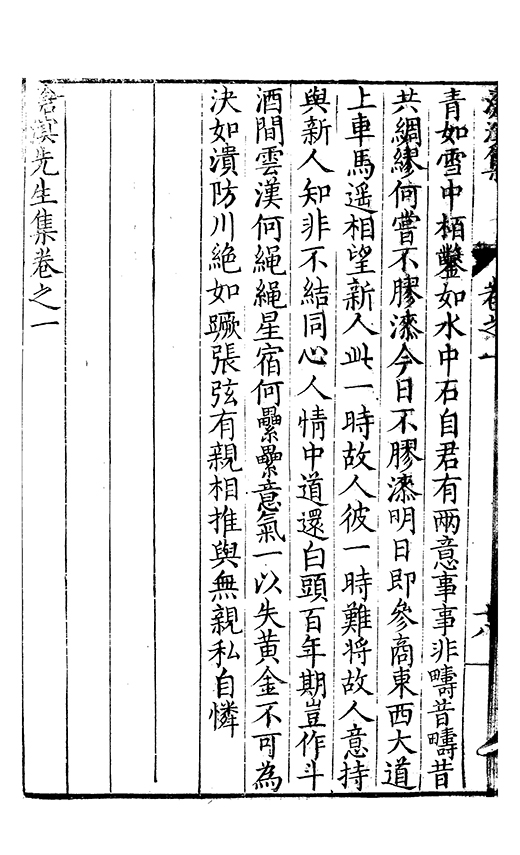 滄溟集 卷之一
青如雪中栢鑿如水中石自君有兩意事事非疇昔疇昔
共綢繆何嘗不膠漆今日不膠漆明日即參商東西大道
上車馬遥相望新人此一時故人彼一時難将故人意持
與新人知非不結同心人情中道還白頭百年期豈作斗
酒間雲漢何縄縄星宿何纍纍意氣一以失黄金不可為
決如潰防川絶如蹶張弦有親相推與無親私自憐
滄溟先生集卷之一